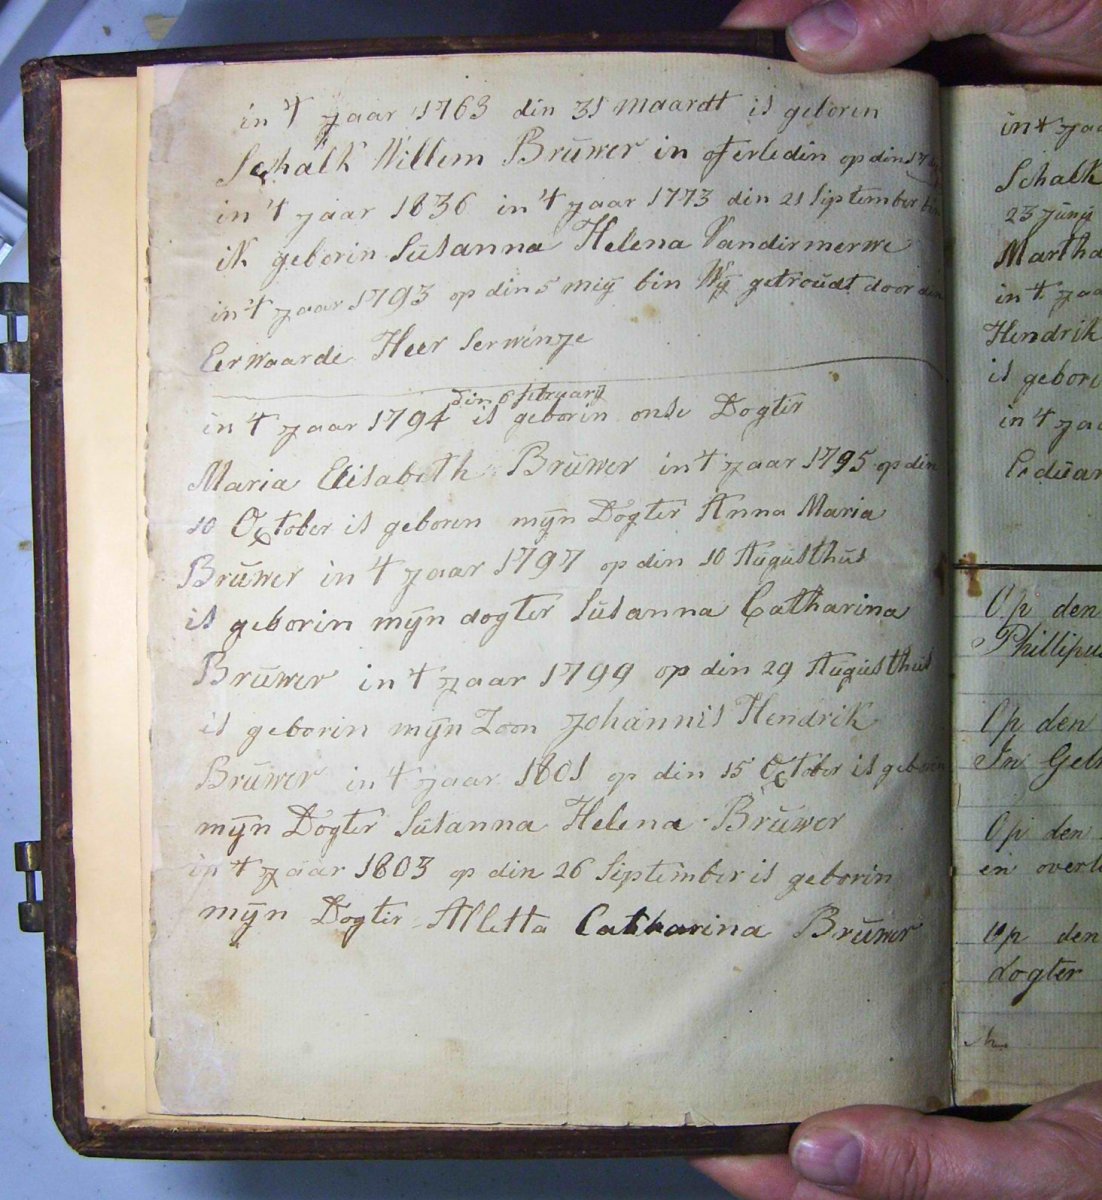 in 't jaar 1763 din 31 maardt is geborin
Schalk Willem Brŭwer in oferledin op din 17
in 't jaar 1836 in 't jaar 1773 din 21 Siptember bin
ik geborin Sŭsanna Helena Vandirmerwe
in 't jaar 1793 op din 5 miÿ bin Wÿ getroŭdt door din
Eerwaarde Heer Serwinje
din 6 februarij
in 't jaar 1794 is geborin onse Dogter
Maria Elisabeth Brŭwer in 't jaar 1795 op din
10 October is geboren mÿn Dogter Anna Maria
Brŭwer in 't jaar 1797 op din 10 Aŭgŭsthŭs
is geborin mÿn dogter Sŭsanna Catharina
Brŭwer in 't jaar 1799 op din 29 Aŭgŭsthŭs
is geborin mÿn Zoon Johannis Hendrik
Brŭwer in 't jaar 1801 op din 15 October is geboren
mÿn Dogter Sŭsanna Helena Brŭwer
in 't jaar 1803 op din 26 Siptember is geborin
mÿn Dogter Alletta Catharina Brŭwer
in 't jaa
Schalk
23 Jŭnÿ
Martha
in 't jaa
Hendrik
is gebori
in 't jaa
Op den
Phillipus
Op den
In Geb
Op den
en overl
Op den
dogter